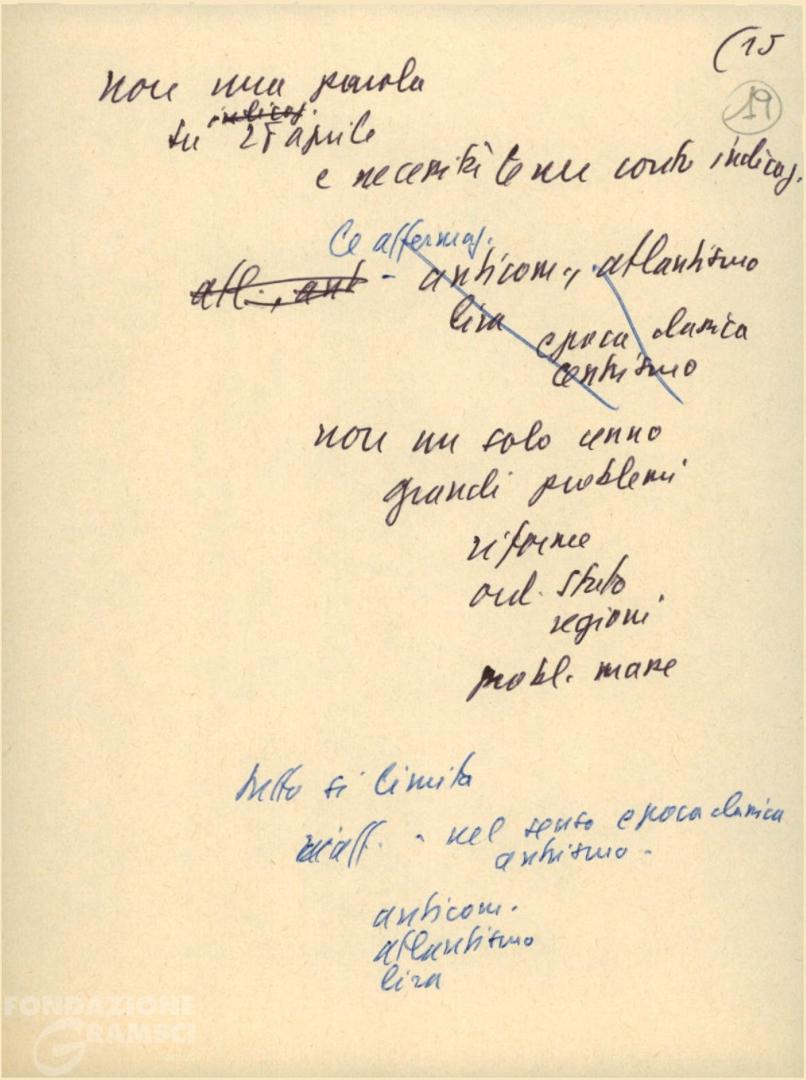 (15
19
non una parola
indicaz.
su 25 aprile
e necessità tener conto indicaz.
Le affermaz.
atl., ant - anticom., atlantismo
lira
epoca classica
centrismo
non un solo cenno
grandi problemi
riforme
ord. Stato
regioni
probl. masse
tutto si limita
riaff. - nel senso epoca classica
centrismo -
anticom.
atlantismo
lira
FONDAZIONE
GRAMSCI